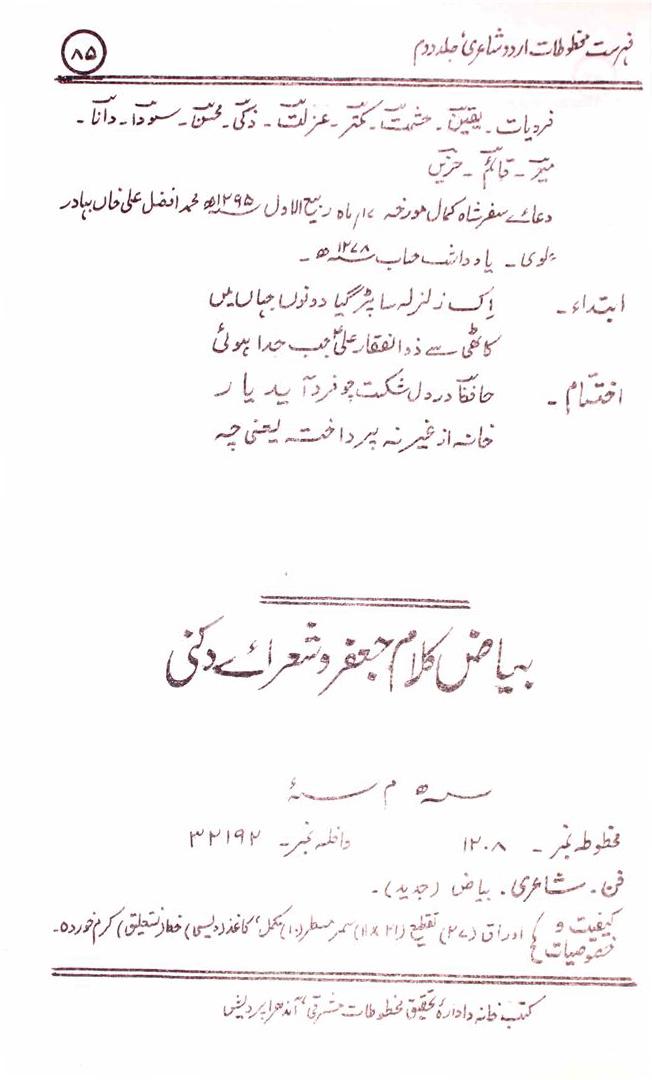 فہرست مخطوطات اردو شاعری، جلد دوم
۸۵
فردیات ۔ یقین ۔ حشمت ۔ کمتر ۔ عزلت ۔ ذکی ۔ محسن ۔ سودا ۔ دانا ۔
میر ۔ قائم ۔ حزیں
دعائے سفر شاہ کمال مورخہ ۱۷؍ ماہ ربیع الاول ۱۲۹۵ھ محمد افضل علی خاں بہادر
یادداشت حساب ۱۲۷۸ھ ۔
ابتداء ۔ اِک زلزلہ سا پڑ گیا دونوں جہاں میں
کاٹھی سے ذوالفقار علیؑ جب جدا ہوئی
اختتام ۔ حافظا در دل تنگت چو فرد آید یار
خانہ از غیر نہ پرداختہ یعنی چہ
بیاض کلام جعفر و شعرائے دکنی
سنہ ھ م سنہ ء
مخطوطہ نمبر ۔ ۱۲۰۸ داخلہ نمبر ۔ ۳۲۱۹۲
فن ۔ شاعری ۔ بیاض (جدید) ۔
کیفیت و خصوصیات } اوراق (۲۷) تقطیع (۲۱ × ۱۱) سمر مسطر (۱۰) مکمل، کاغذ (دیسی) خط (نستعلیق) کرم خوردہ ۔
کتب خانہ و ادارۂ تحقیق مخطوطات مشرقی، آندھرا پردیش